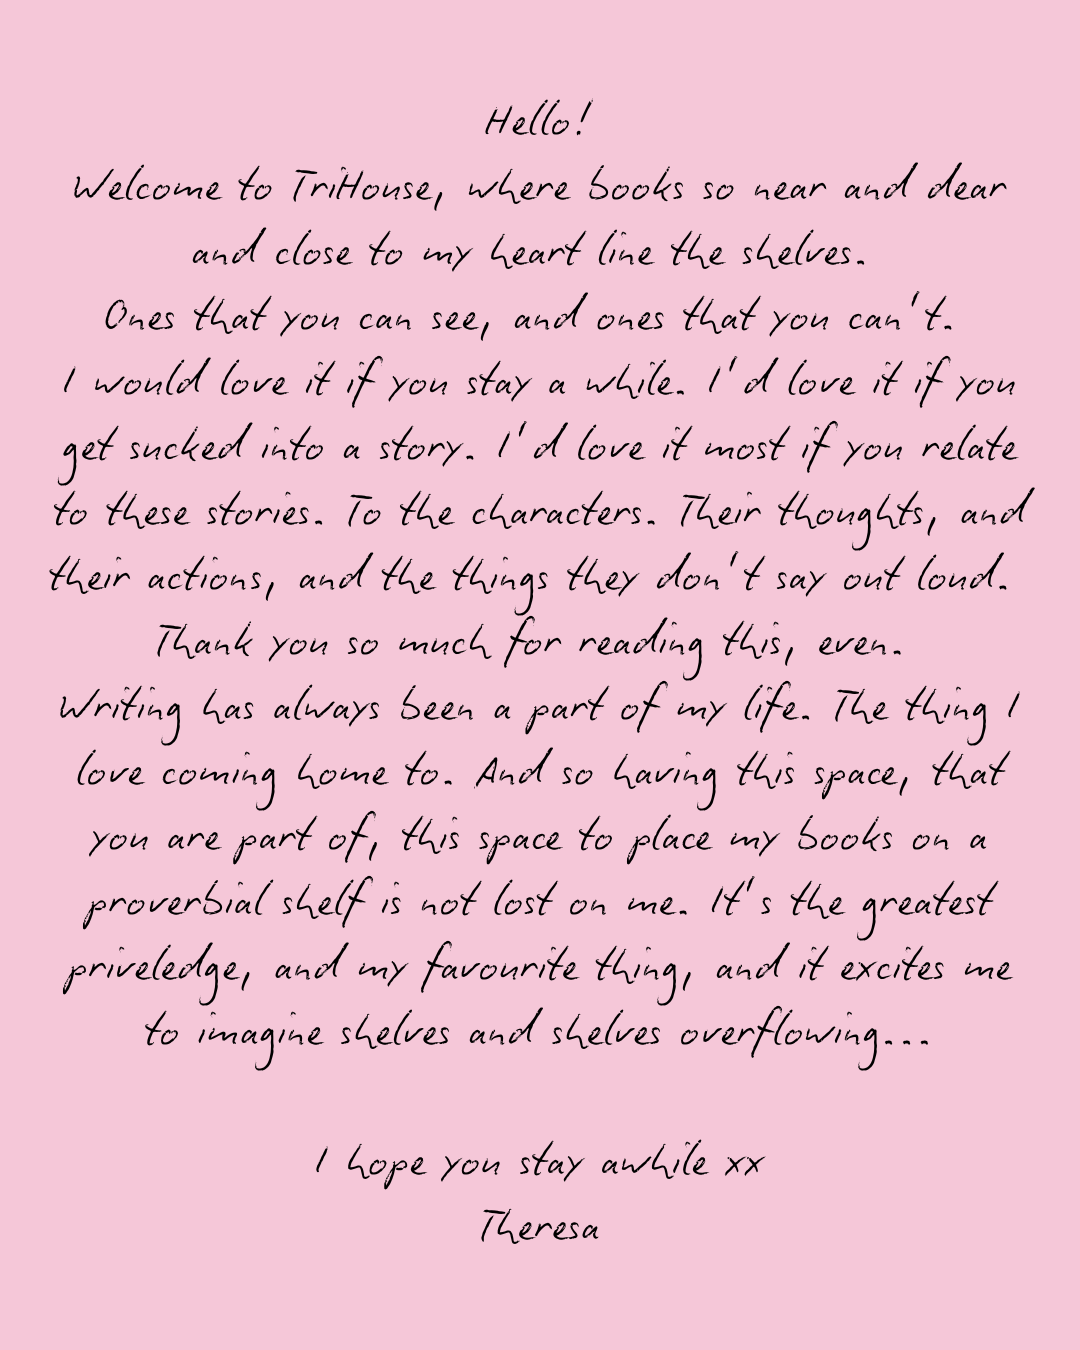 Hello!
Welcome to TriHouse, where books so near and dear
and close to my heart line the shelves.
Ones that you can see, and ones that you can't.
I would love it if you stay a while. I'd love it if you
get sucked into a story. I'd love it most if you relate
to these stories. To the characters. Their thoughts, and
their actions, and the things they don't say out loud.
Thank you so much for reading this, even.
Writing has always been a part of my life. The thing I
love coming home to. And so having this space, that
you are part of, this space to place my books on a
proverbial shelf is not lost on me. It's the greatest
priveledge, and my favourite thing, and it excites me
to imagine shelves and shelves overflowing...
I hope you stay awhile xx
Theresa